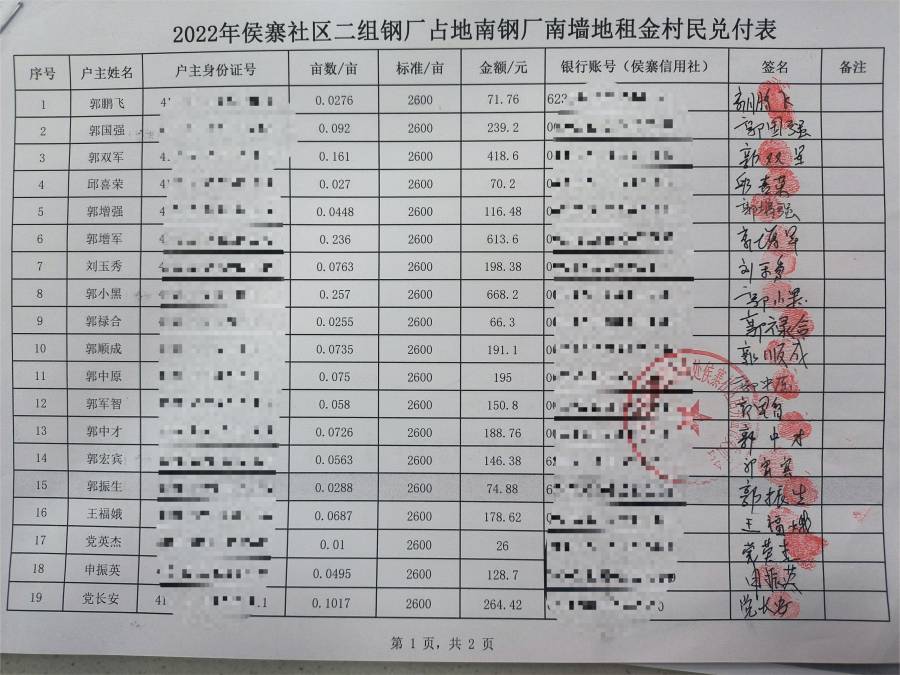 2022年侯寨社区二组钢厂占地南钢厂南墙地租金村民兑付表
序号 户主姓名 户主身份证号 亩数/亩 标准/亩 金额/元 银行账号（侯寨信用社） 签名 备注
1 郭鹏飞 41 0.0276 2600 71.76 623 郭鹏飞
2 郭国强 0.092 2600 239.2 郭国强
3 郭双军 4 0.161 2600 418.6 郭双军
4 邱喜荣 41 0.027 2600 70.2 邱喜荣
5 郭增强 4 0.0448 2600 116.48 郭增强
6 郭增军 4 0.236 2600 613.6 郭增军
7 刘玉秀 4 0.0763 2600 198.38 刘玉秀
8 郭小黑 0.257 2600 668.2 郭小黑
9 郭禄合 0.0255 2600 66.3 郭禄合
10 郭顺成 0.0735 2600 191.1 郭顺成
11 郭中原 0.075 2600 195 郭中原
12 郭军智 0.058 2600 150.8
13 郭中才 0.0726 2600 188.76 郭中才
14 郭宏宾 0.0563 2600 146.38
15 郭振生 0.0288 2600 74.88 郭振生
16 王福娥 0.0687 2600 178.62 王福娥
17 党英杰 0.01 2600 26 党英杰
18 申振英 0.0495 2600 128.7 申振英
19 党长安 41 1 0.1017 2600 264.42 0 党长安
第 1 页，共 2 页